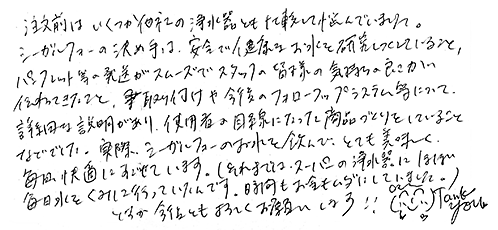 注文前は、いくつか他社の浄水器とも比較して悩んでいました。
シーガルフォーの決め手は、安全で健康なお水を研究しつくしていること、
パンフレット等の発送がスムーズでスタッフの皆様の気持ちの良さが
伝わってきたこと、取り付けや今後のフォローアップシステム等について
詳細な説明があり、使用者の目線にたった商品づくりをしていること
などでした。実際、シーガルフォーのお水を飲んで、とても美味しく、
毎日、快適にすごせています。(それまでは、スーパーの浄水器にほぼ
毎日水をくみに行っていたんです。時間もお金もムダにしていました。)
どうか今後ともよろしくお願いします!! Thank you